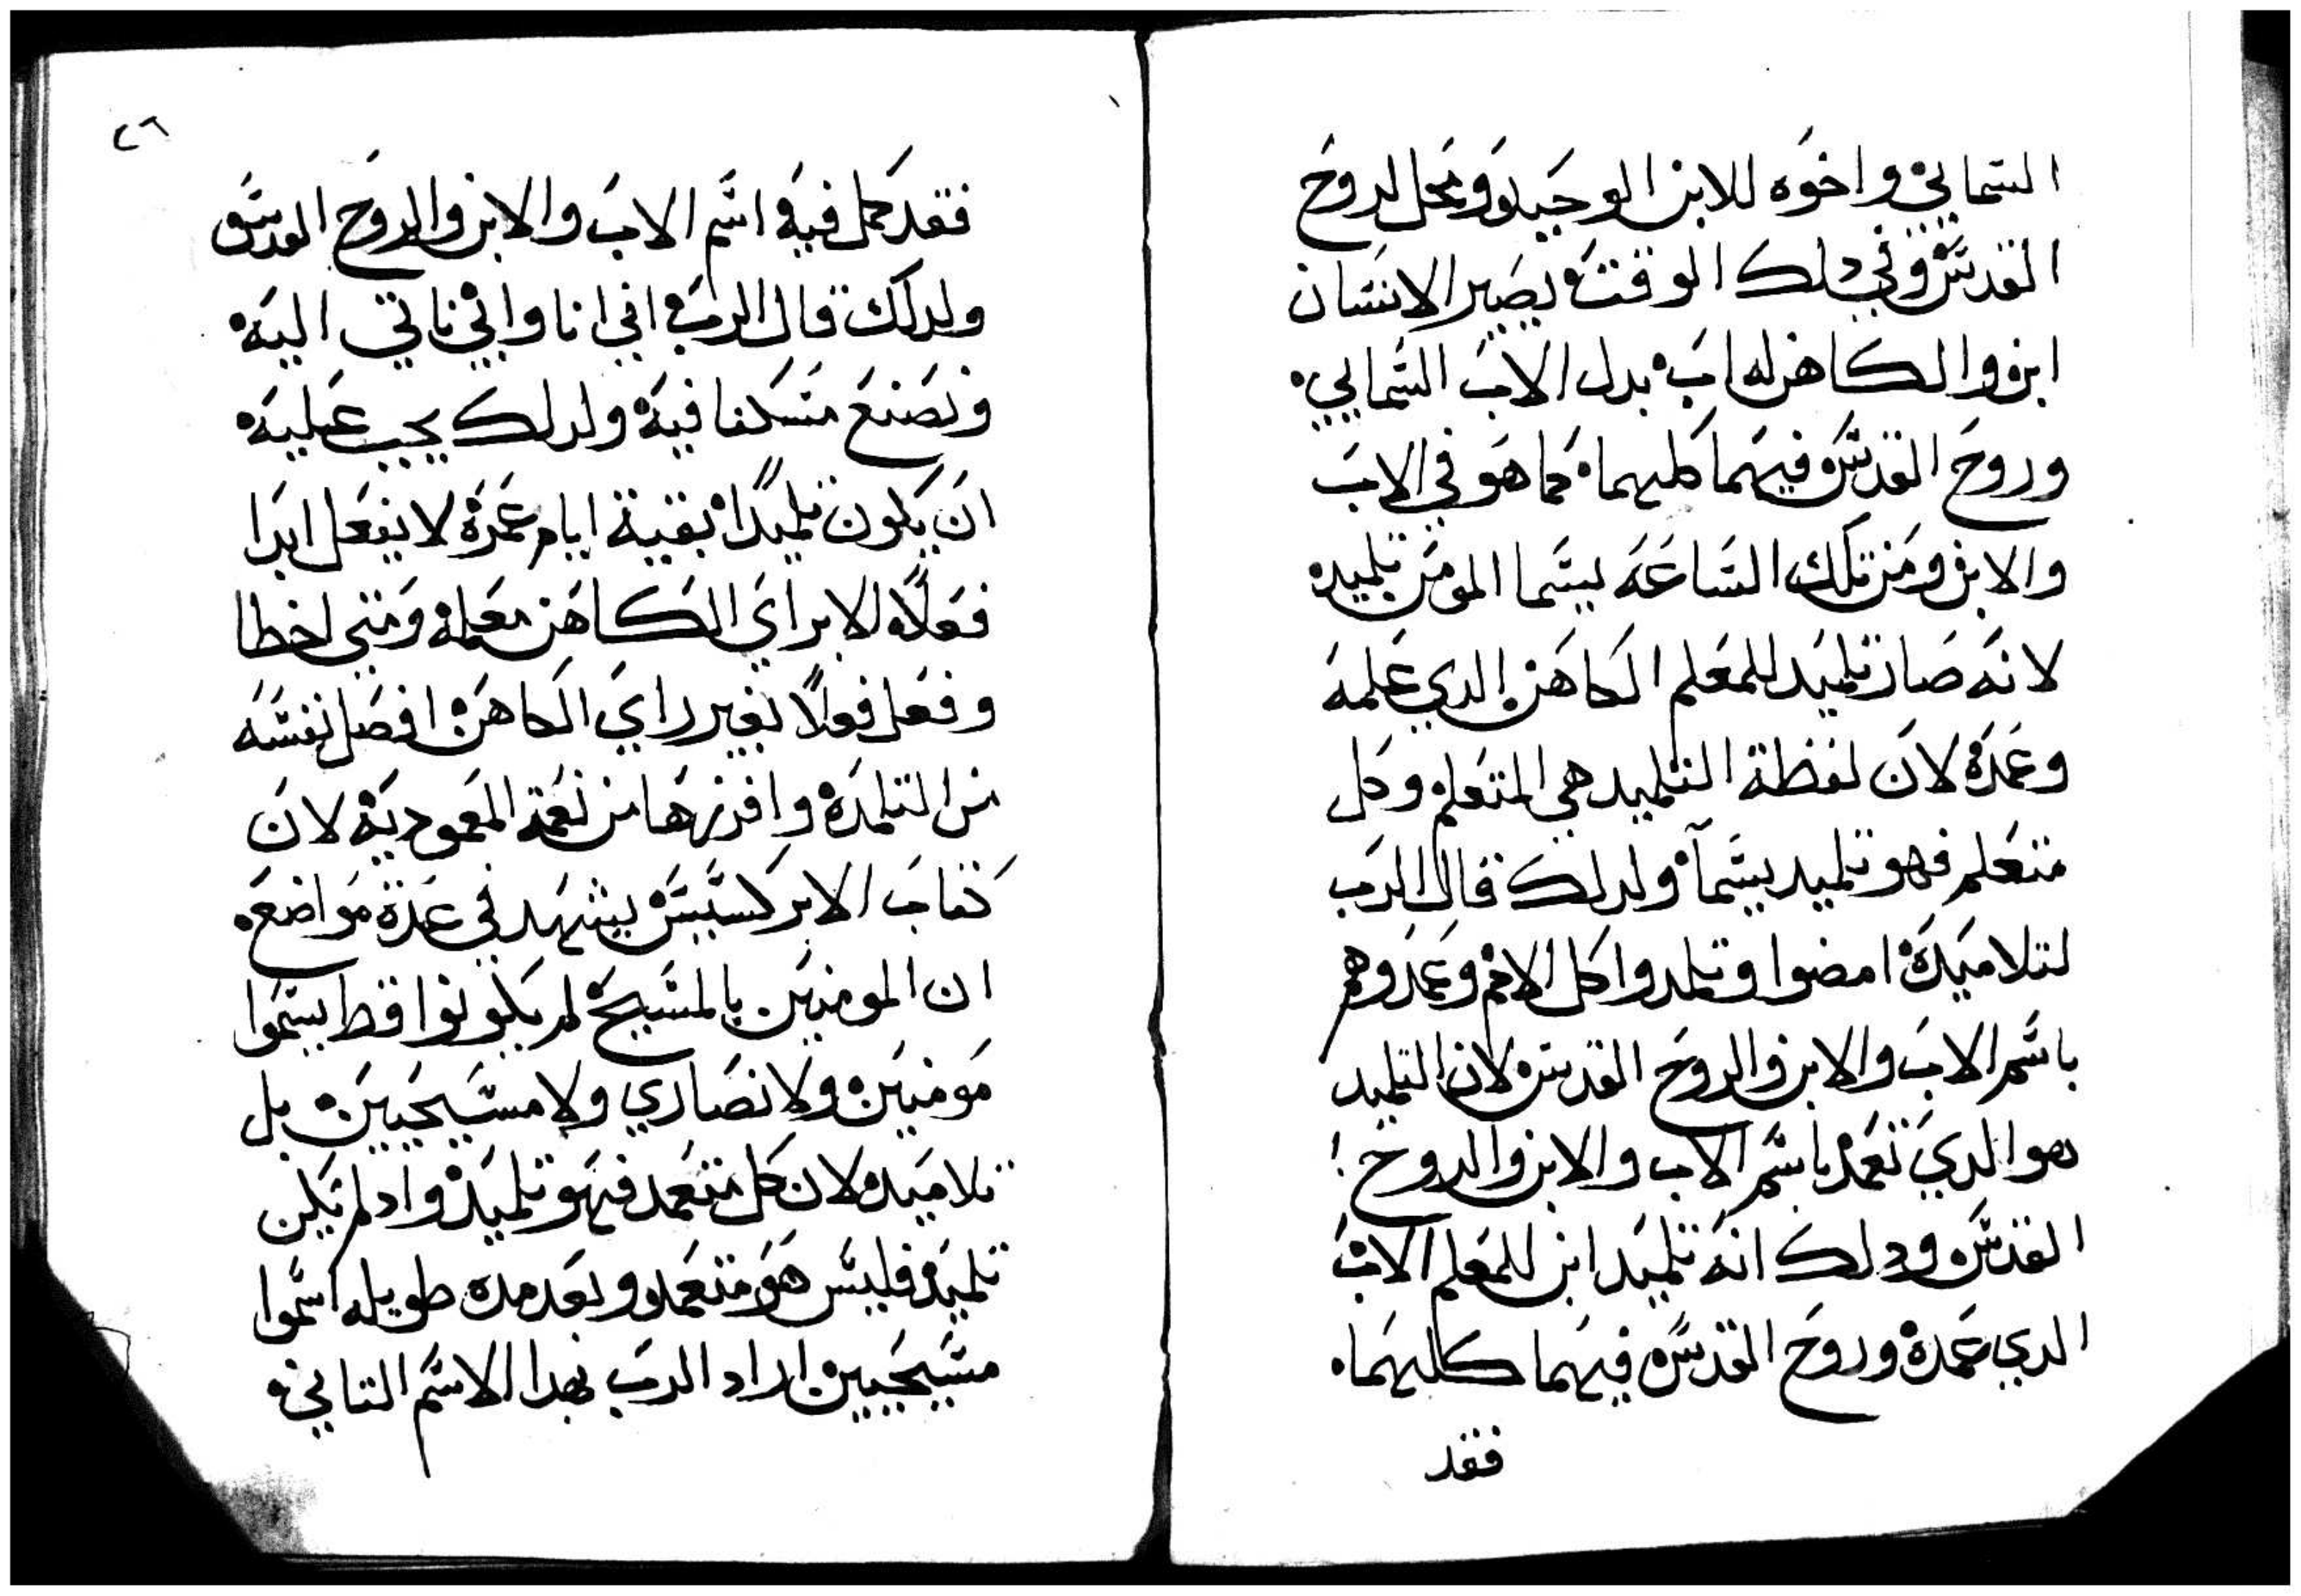 السماني واخوه للابن الوحيد ومحل لروح
القدس وفي دلك الوقت يصير الانسان
ابن والكاهن له اب بدل الاب السمايي
وروح القدس فيهما كليهما كما هو في الاب
والابن ومن تلك الساعه يسما المومن تلميد
لانه صار تلميد للمعلم الكاهن الدي علمه
وعمده لان لفظة التلميد هي المتعلم وكل
متعلم فهو تلميد يسمآ ولدلك قال الرب
لتلاميده امضوا وتلمدوا كل الامم وعمدوهم
باسم الاب والابن والروح القدس لان التلميد
هو الدي تعمد باسم الاب والابن والروح
القدس ودلك انه تلميد ابن للمعلم الاب
الدي عمده وروح القدس فيهما كليهما
فقد
٢٦
فقد كمل فيه اسم الاب والابن والروح القدس
ولدلك قال الرب اني انا وابي ناتي اليه
ونصنع مسكنا فيه ولدلك يجب عليه
ان يكون تلميدًا بقية ايام عمره لا يفعل ابدا
فعلًا الا براي الكاهن معلمه ومتي اخطا
وفعل فعلًا بغير راي الكاهن افصل نفسه
من التلمده وافرزها من نعمة المعموديه لان
كتاب الابركسيس يشهد في عدة مواضع
ان المومنين بالمسيح لم يكونوا قط يسموا
مومنين ولا نصاري ولا مسيحيين بل
تلاميد لان كل متعمد فهو تلميد واد لم يكن
تلميد فليس هو متعمد وبعد مده طويله اسموا
مسيحيين اراد الرب بهدا الاسم التاني